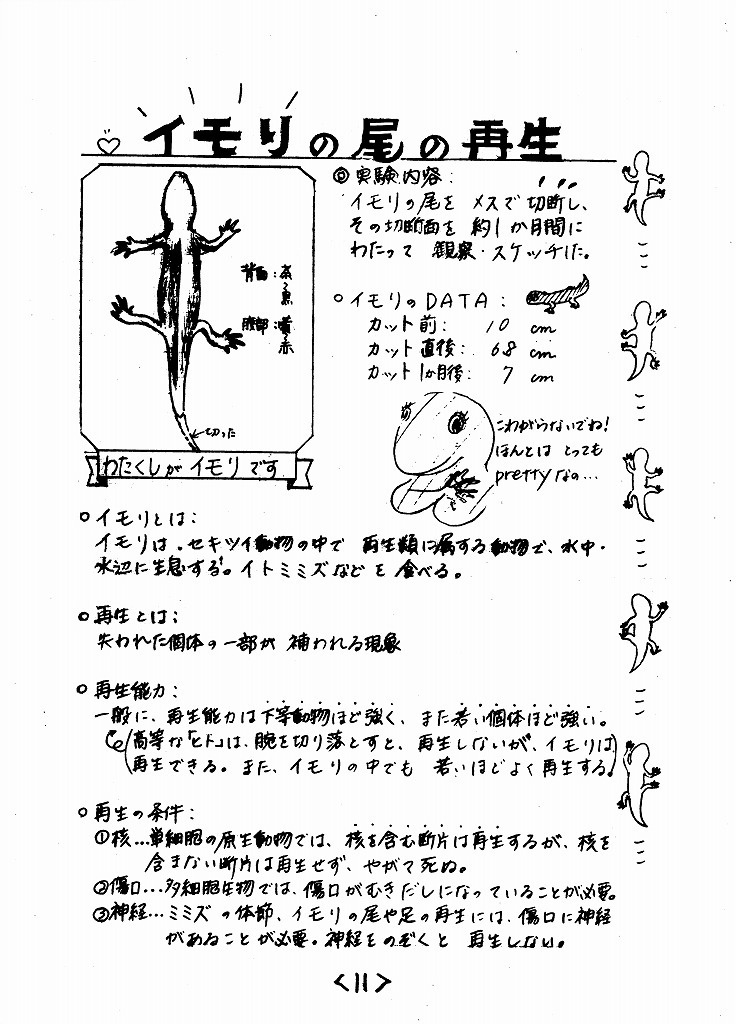 イモリの尾の再生
背面：茶る黒
腹部：黄赤
切った
わたくしが イモリ です
◎実験内容：
イモリの尾を メスで 切断し、
その切断面を 約1か月間に
わたって 観察・スケッチした。
○イモリのDATA：
カット前： 10 cm
カット直後： 6.8 cm
カット1か月後： 7 cm
こわがらないでね！
ほんとは とっても
prettyなの…
○イモリとは：
イモリは、セキツイ動物の中で 再生類に属する動物で、水中・
水辺に生息する。イトミミズなどを 食べる。
○再生とは；
失われた個体の一部が 補われる現象
○再生能力：
一般に、再生能力は下等動物ほど強く、また若い個体ほど強い。
(高等な「ヒト」は、腕を切り落とすと、再生しないが、イモリは
再生できる。また、イモリの中でも 若いほどよく再生する。)
○再生の条件：
①核…単細胞の原生動物では、核を含む断片は再生するが、核を
含まない断片は再生せず、やがて死ぬ。
②傷口…多細胞生物では、傷口がむきだしになっていることが必要。
③神経…ミミズの体節、イモリの尾や足の再生には、傷口に神経
があることが必要。神経をのぞくと 再生しない。
<11>